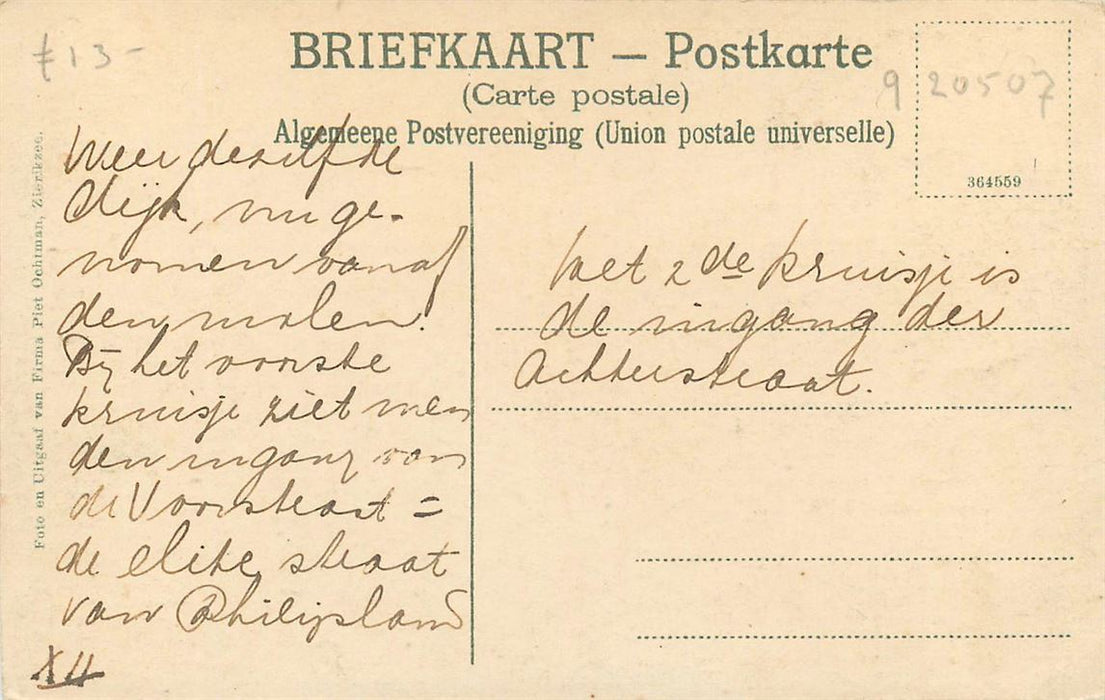 £13-
BRIEFKAART — Postkarte
(Carte postale)
Algemeene Postvereeniging (Union postale universelle)
9 20507
364559
Foto en Uitgaaf van Firma Piet Ochtman, Zierikzee.
Weer dezelfde
dijk, nu ge-
nomen vanaf
den molen.
Bij het voorste
kruisje ziet men
den ingang van
de Voorstraat =
de elite straat
van Philipsland
XII
Het 2de kruisje is
de ingang der
Achterstraat.